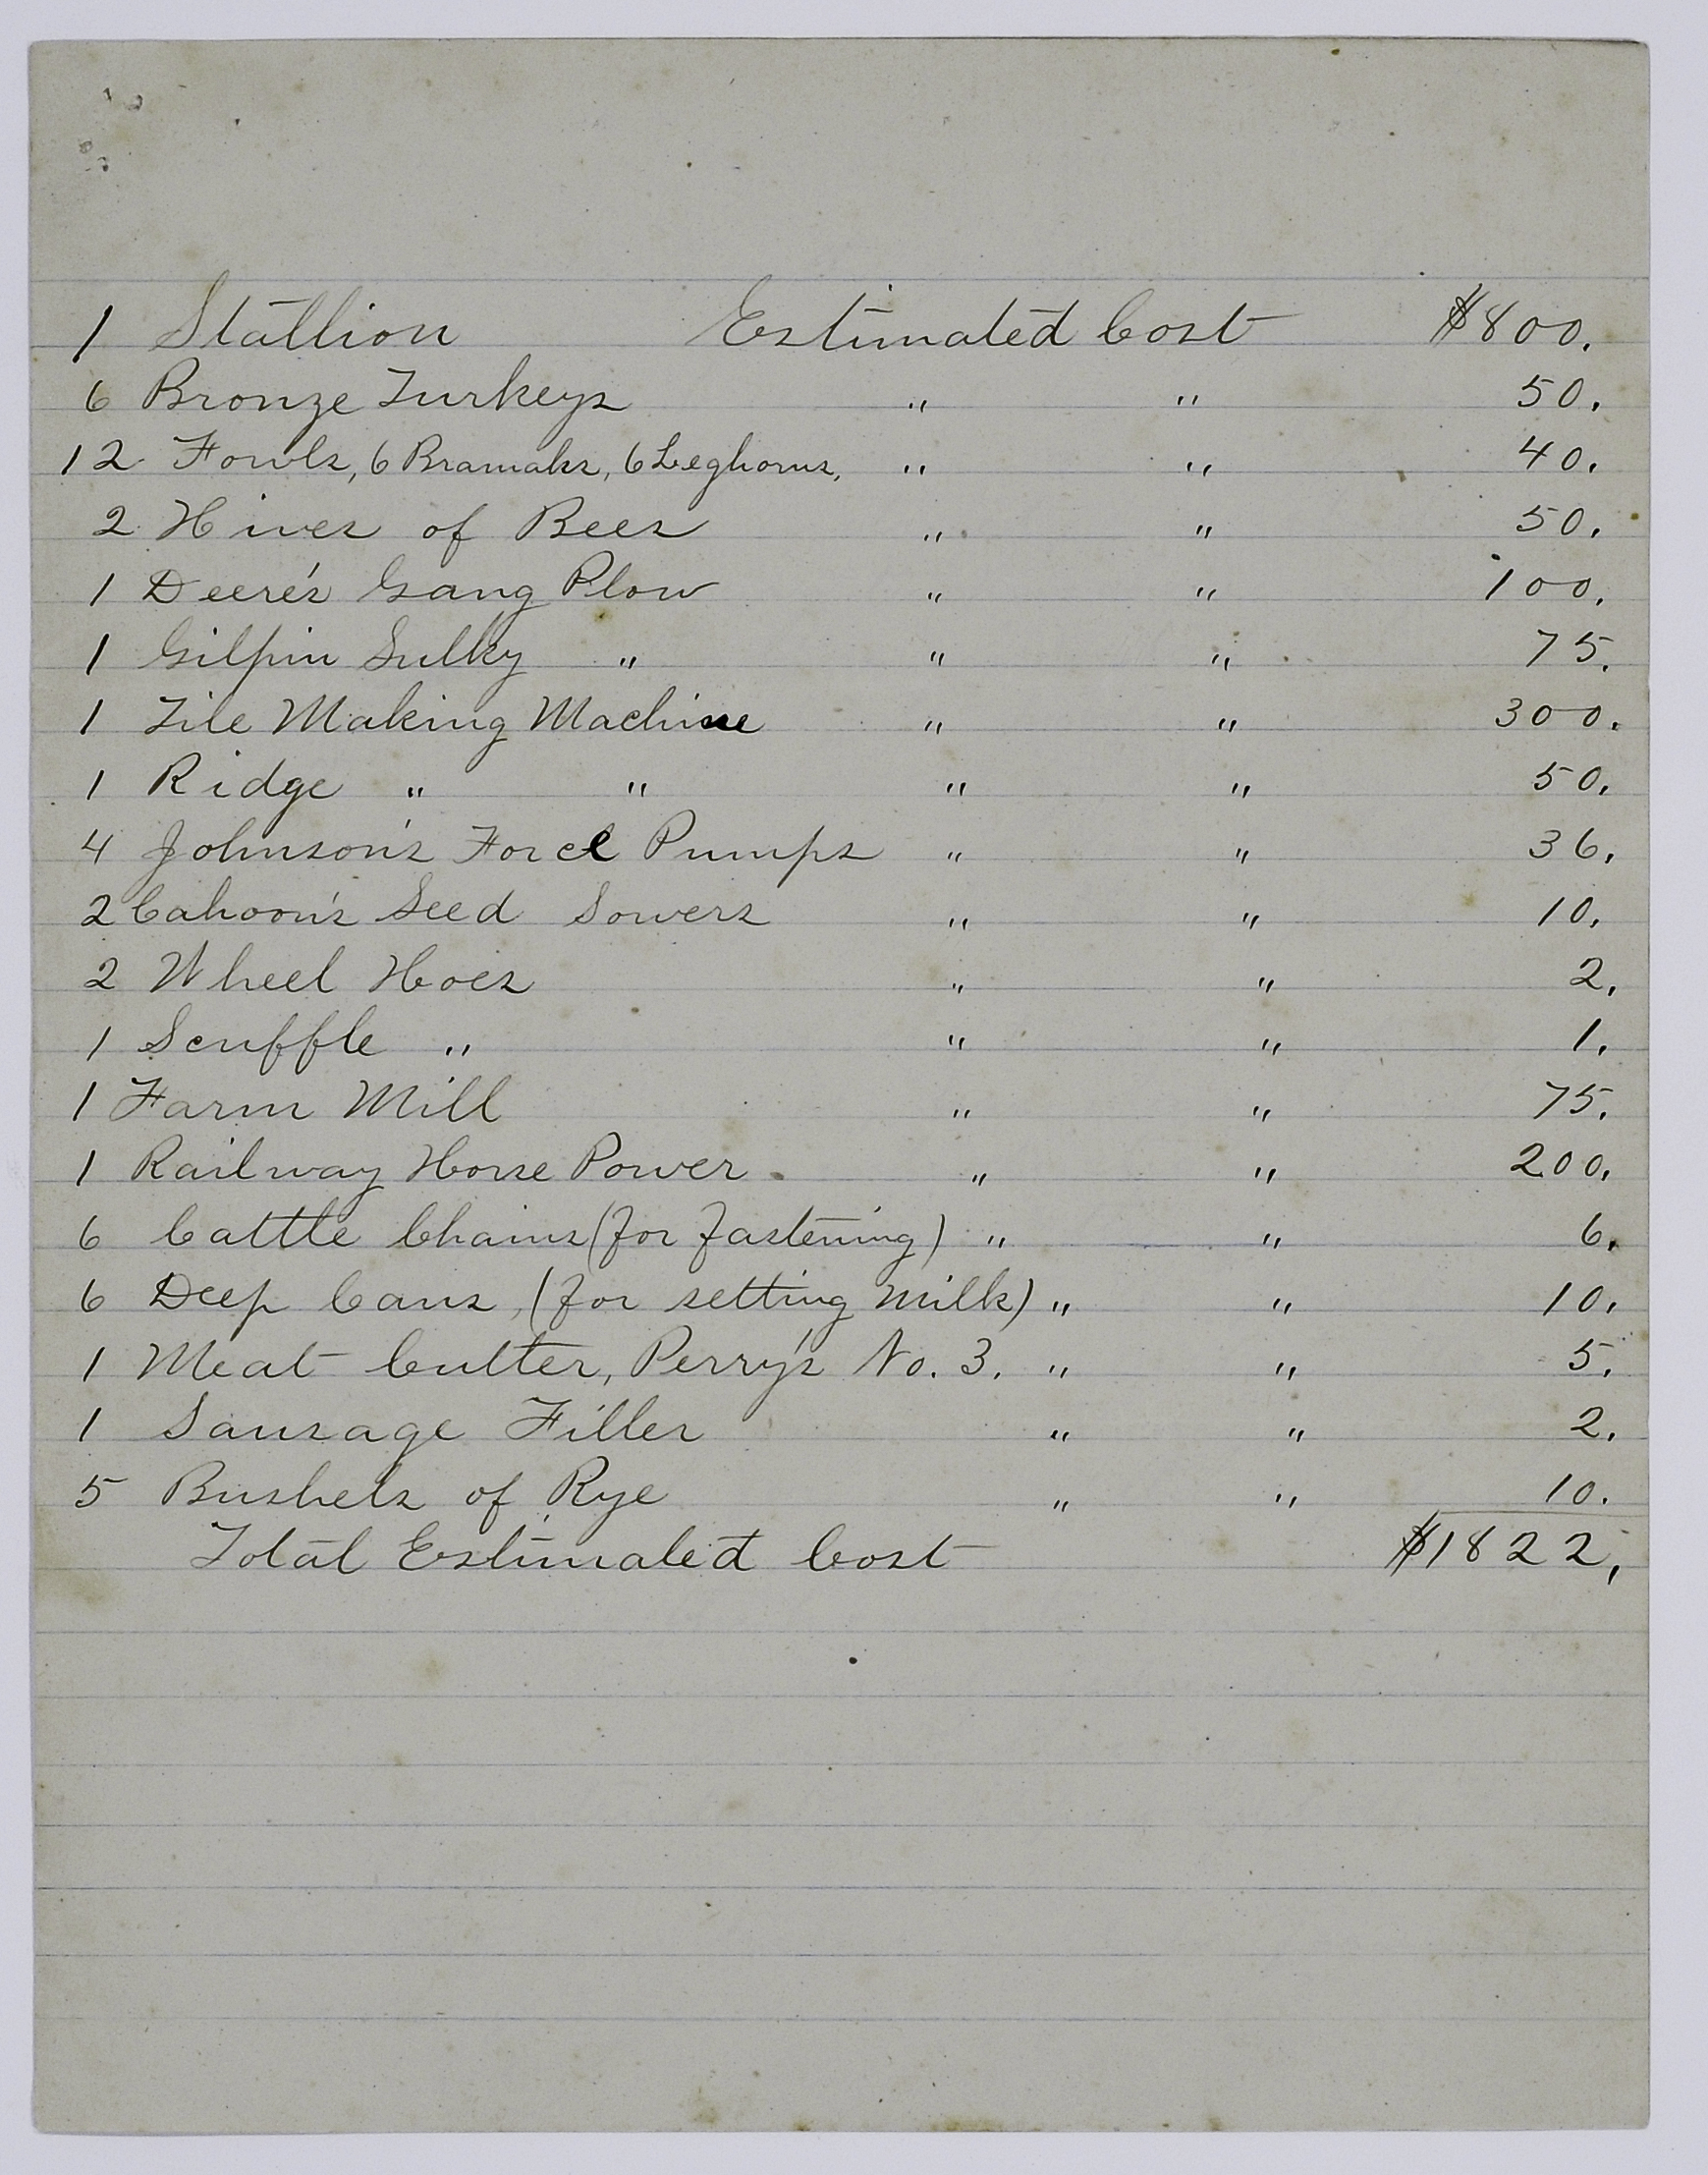 1 Stallion Estimated Cost $800.
6 Bronze Turkeys " " 50.
12 Fowls, 6 Bramahs, 6 Leghorns, " " 40.
2 Hives of Bees " " 50.
1 Deere's Gang Plow " " 100.
1 Gilpin Sulky " " " 75.
1 Tile Making Machine " " 300.
1 Ridge " " " " 50.
4 Johnson's Force Pumps " " 36.
2 Cahoon's Seed Sowers " " 10.
2 Wheel Hoes " " 2.
1 Scuffle " " " 1.
1 Farm Mill " " 75.
1 Railway Horse Power " " 200.
6 Cattle Chains (for fastening) " " 6.
6 Deep Cans, (for setting milk) " " 10.
1 Meat Cutter, Perry's No. 3. " " 5.
1 Sausage Filler " " 2.
5 Bushels of Rye " " 10.
Total Estimated Cost $1822.